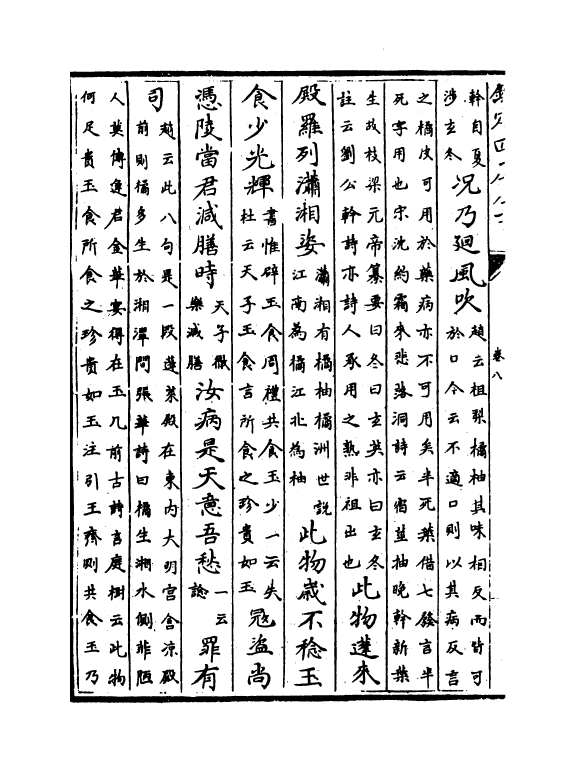 卷八
幹自夏
涉玄冬
況乃廻風吹
趙云柤棃橘柚其味相反而皆可
於口今云不適口則以其病反言
之橘皮可用於藥病亦不可用矣半死葉借七發言半
死字用也宋沈約霜來悲落洞詩云宿莖抽晚幹新葉
生故枝梁元帝纂要曰冬曰玄英亦曰玄冬
註云劉公幹詩亦詩人承用之熟非祖出也
此物蓬來
殿羅列瀟湘姿
瀟湘有橘柚橘洲世說
江南為橘江北為柚
此物歲不稔玉
食少光輝
書惟辟玉食周禮共食玉少一云失
杜云天子玉食言所食之珍貴如玉
冦盗尚
憑陵當君減膳時
天子徹
樂減膳
汝病是天意吾愁
一云
諗
罪有
司
趙云此八句是一段蓬萊殿在東内大明宮含凉殿
前則橘多生於湘潭問張華詩曰橘生湘水側菲陋
人莫傳逢君金華宴得在玉几前古詩言庭樹云此物
何足貴玉食所食之珍貴如玉注引王齊則共食玉乃